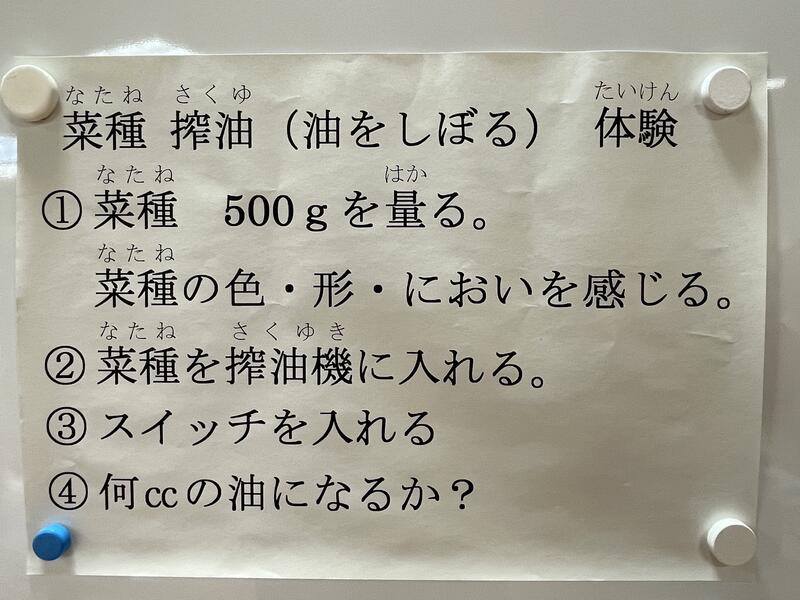 なたね さくゆ たいけん
菜種 搾油（油をしぼる） 体験
なたね はか
①菜種 500gを量る。
なたね
菜種の色・形・においを感じる。
なたね さくゆき
②菜種を搾油機に入れる。
③スイッチを入れる
④何ccの油になるか？